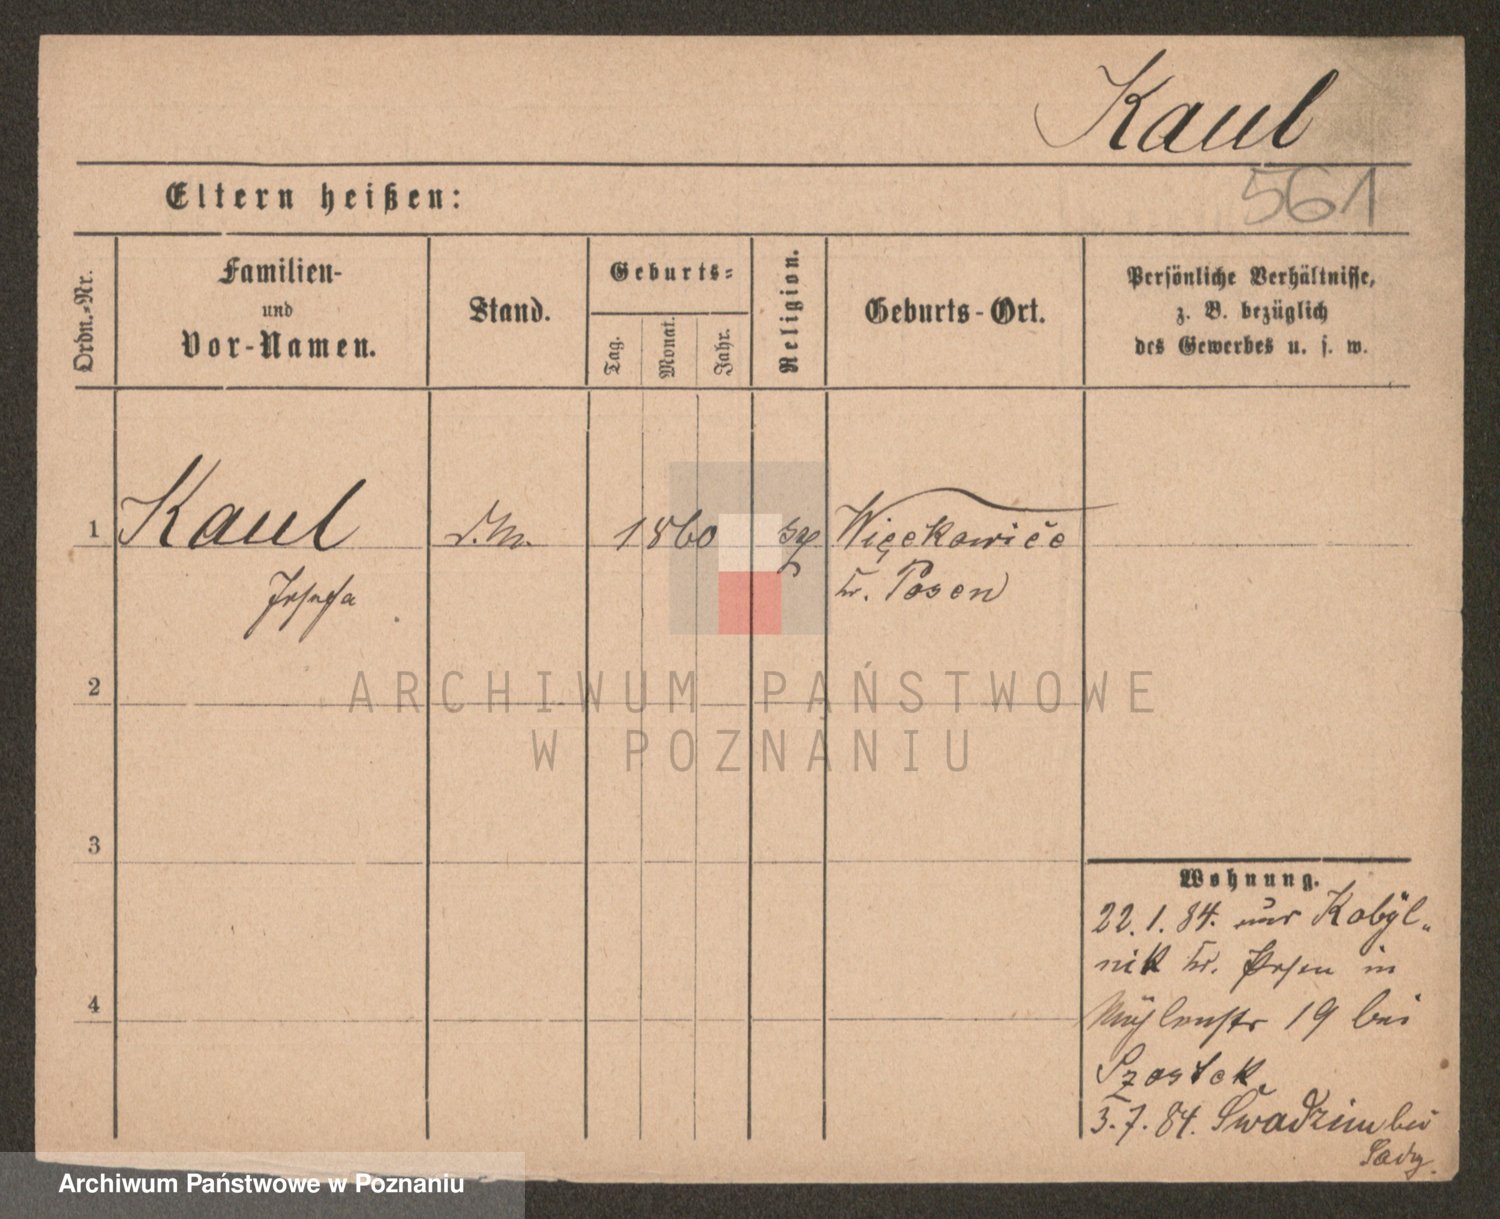 Kaul
561
Eltern heißen:
Ordn.-Nr.
Familien-
und
Vor-Namen.
Stand.
Geburts-
Tag.
Monat.
Jahr.
Religion.
Geburts-Ort.
Persönliche Verhältnisse,
z. B. bezüglich
des Gewerbes u. s. w.
1 Kaul d.M. 1860 Więckowice
Josefa kr. Posen
2
3
4
Wohnung.
22.1.84. aus Kobyl-
nik kr. Posen in
Mühlenstr 19 bei
Szostek.
3.7.84. Swadzim bei
Sady.
ARCHIWUM PAŃSTWOWE
W POZNANIU
Archiwum Państwowe w Poznaniu